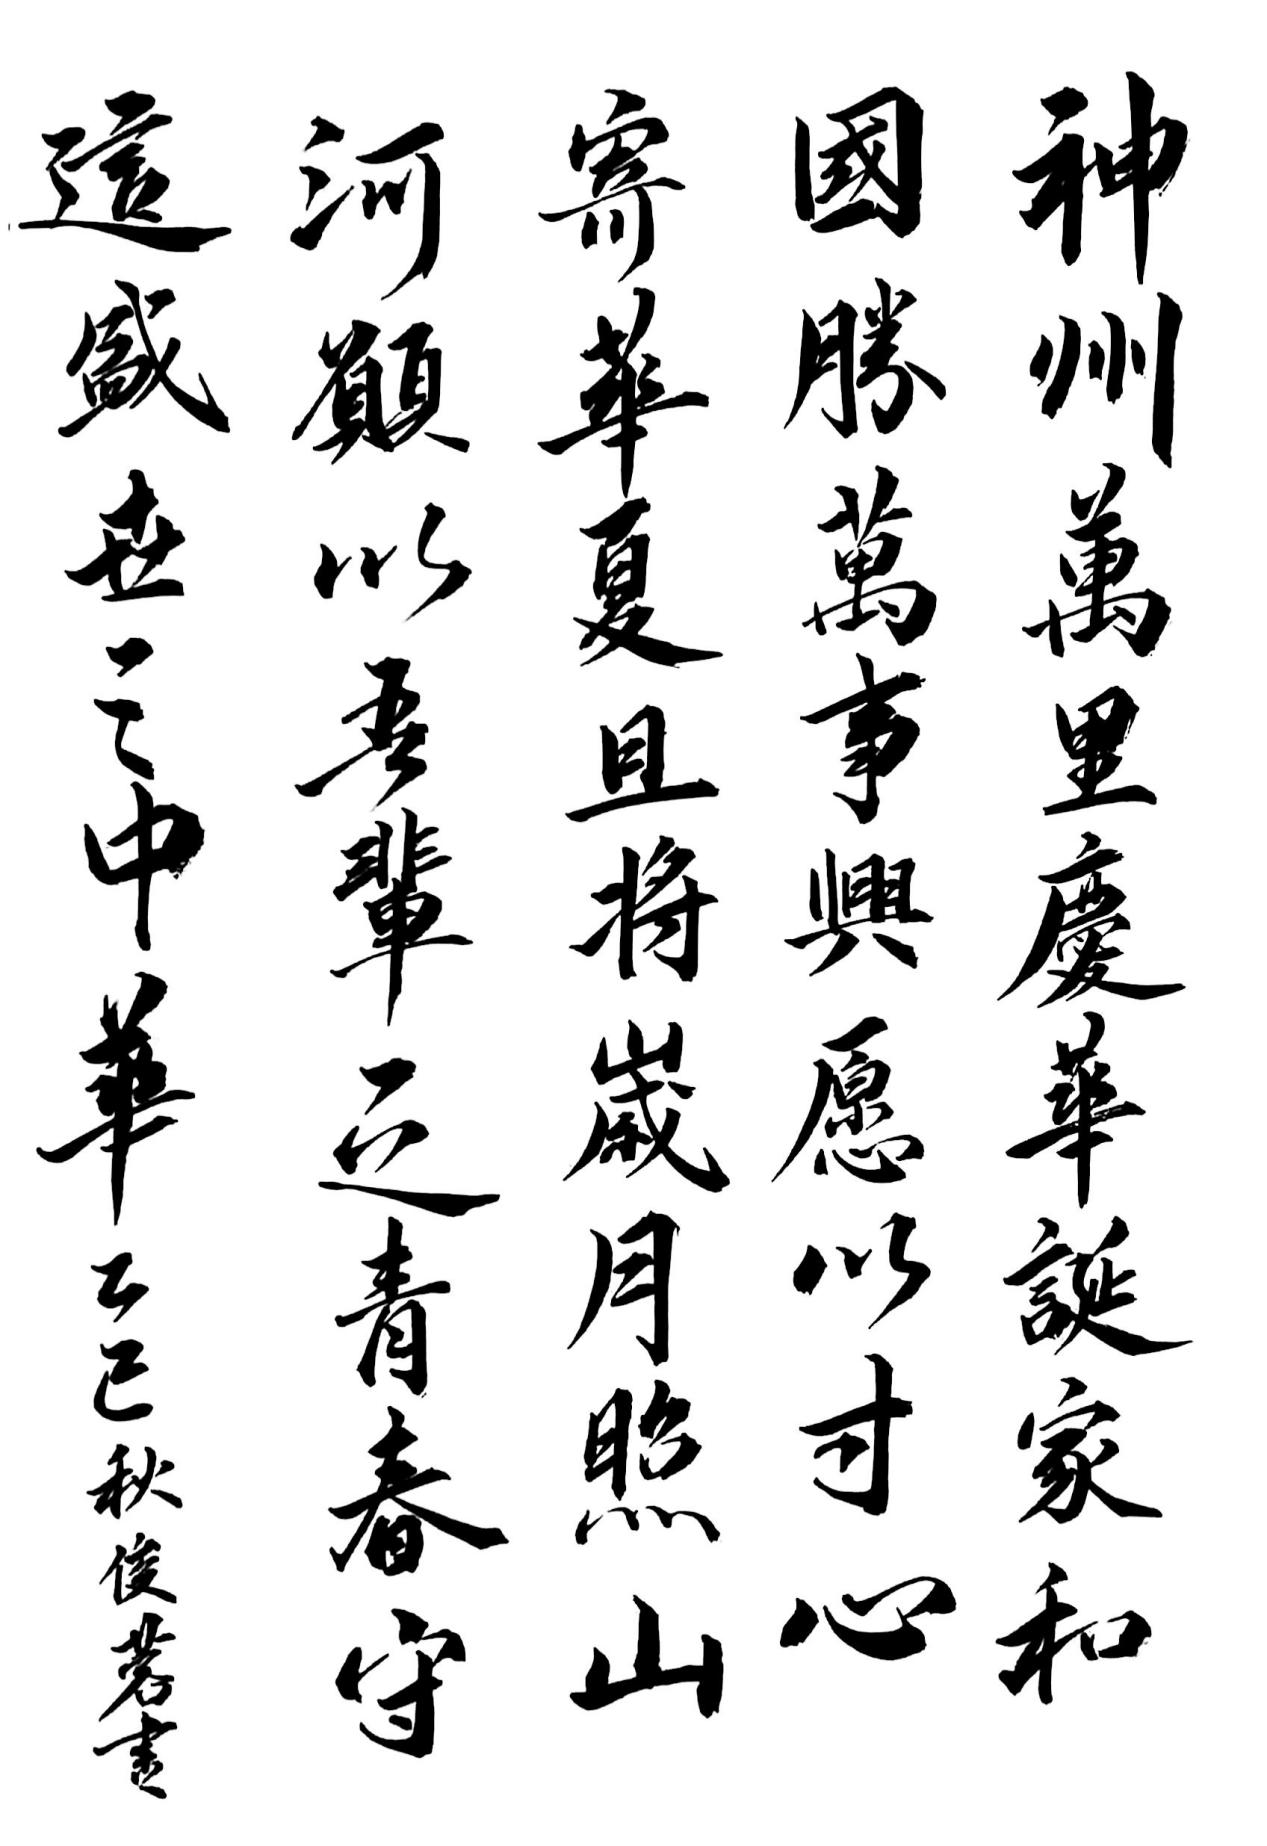 神州萬里慶華誕家和
國勝萬事興愿以寸心
寄華夏且將嵗月照山
河願以吾輩之青春守
這盛世之中華乙巳秋俊茗書